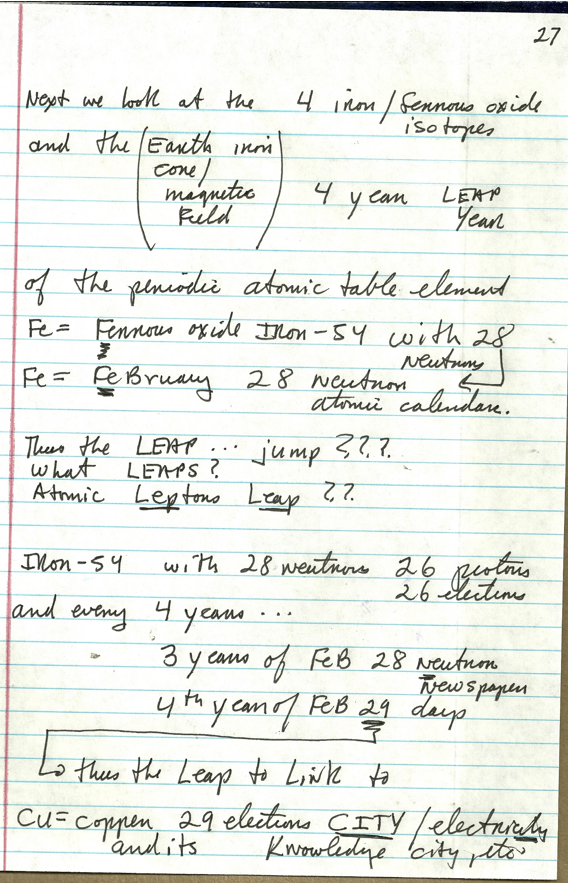 27
Next we look at the 4 iron / ferrous oxide
isotopes
and the (Earth iron
core/
magnetic
Field) 4 year LEAP
Year
of the periodic atomic table element
Fe = Ferrous oxide IRon-54 with 28
Neutrons
Fe = FeBruary 28 neutron
atomic calendar.
Thus the LEAP ... jump ???
what LEAPS?
Atomic Leptons Leap ??
IRon-54 with 28 neutrons 26 protons
26 electrons
and every 4 years ...
3 years of FeB 28 neutron
Newspaper
4th year of FeB 29 days
thus the Leap to Link to
CU = copper 29 electrons CITY / electricity
and its Knowledge city, etc